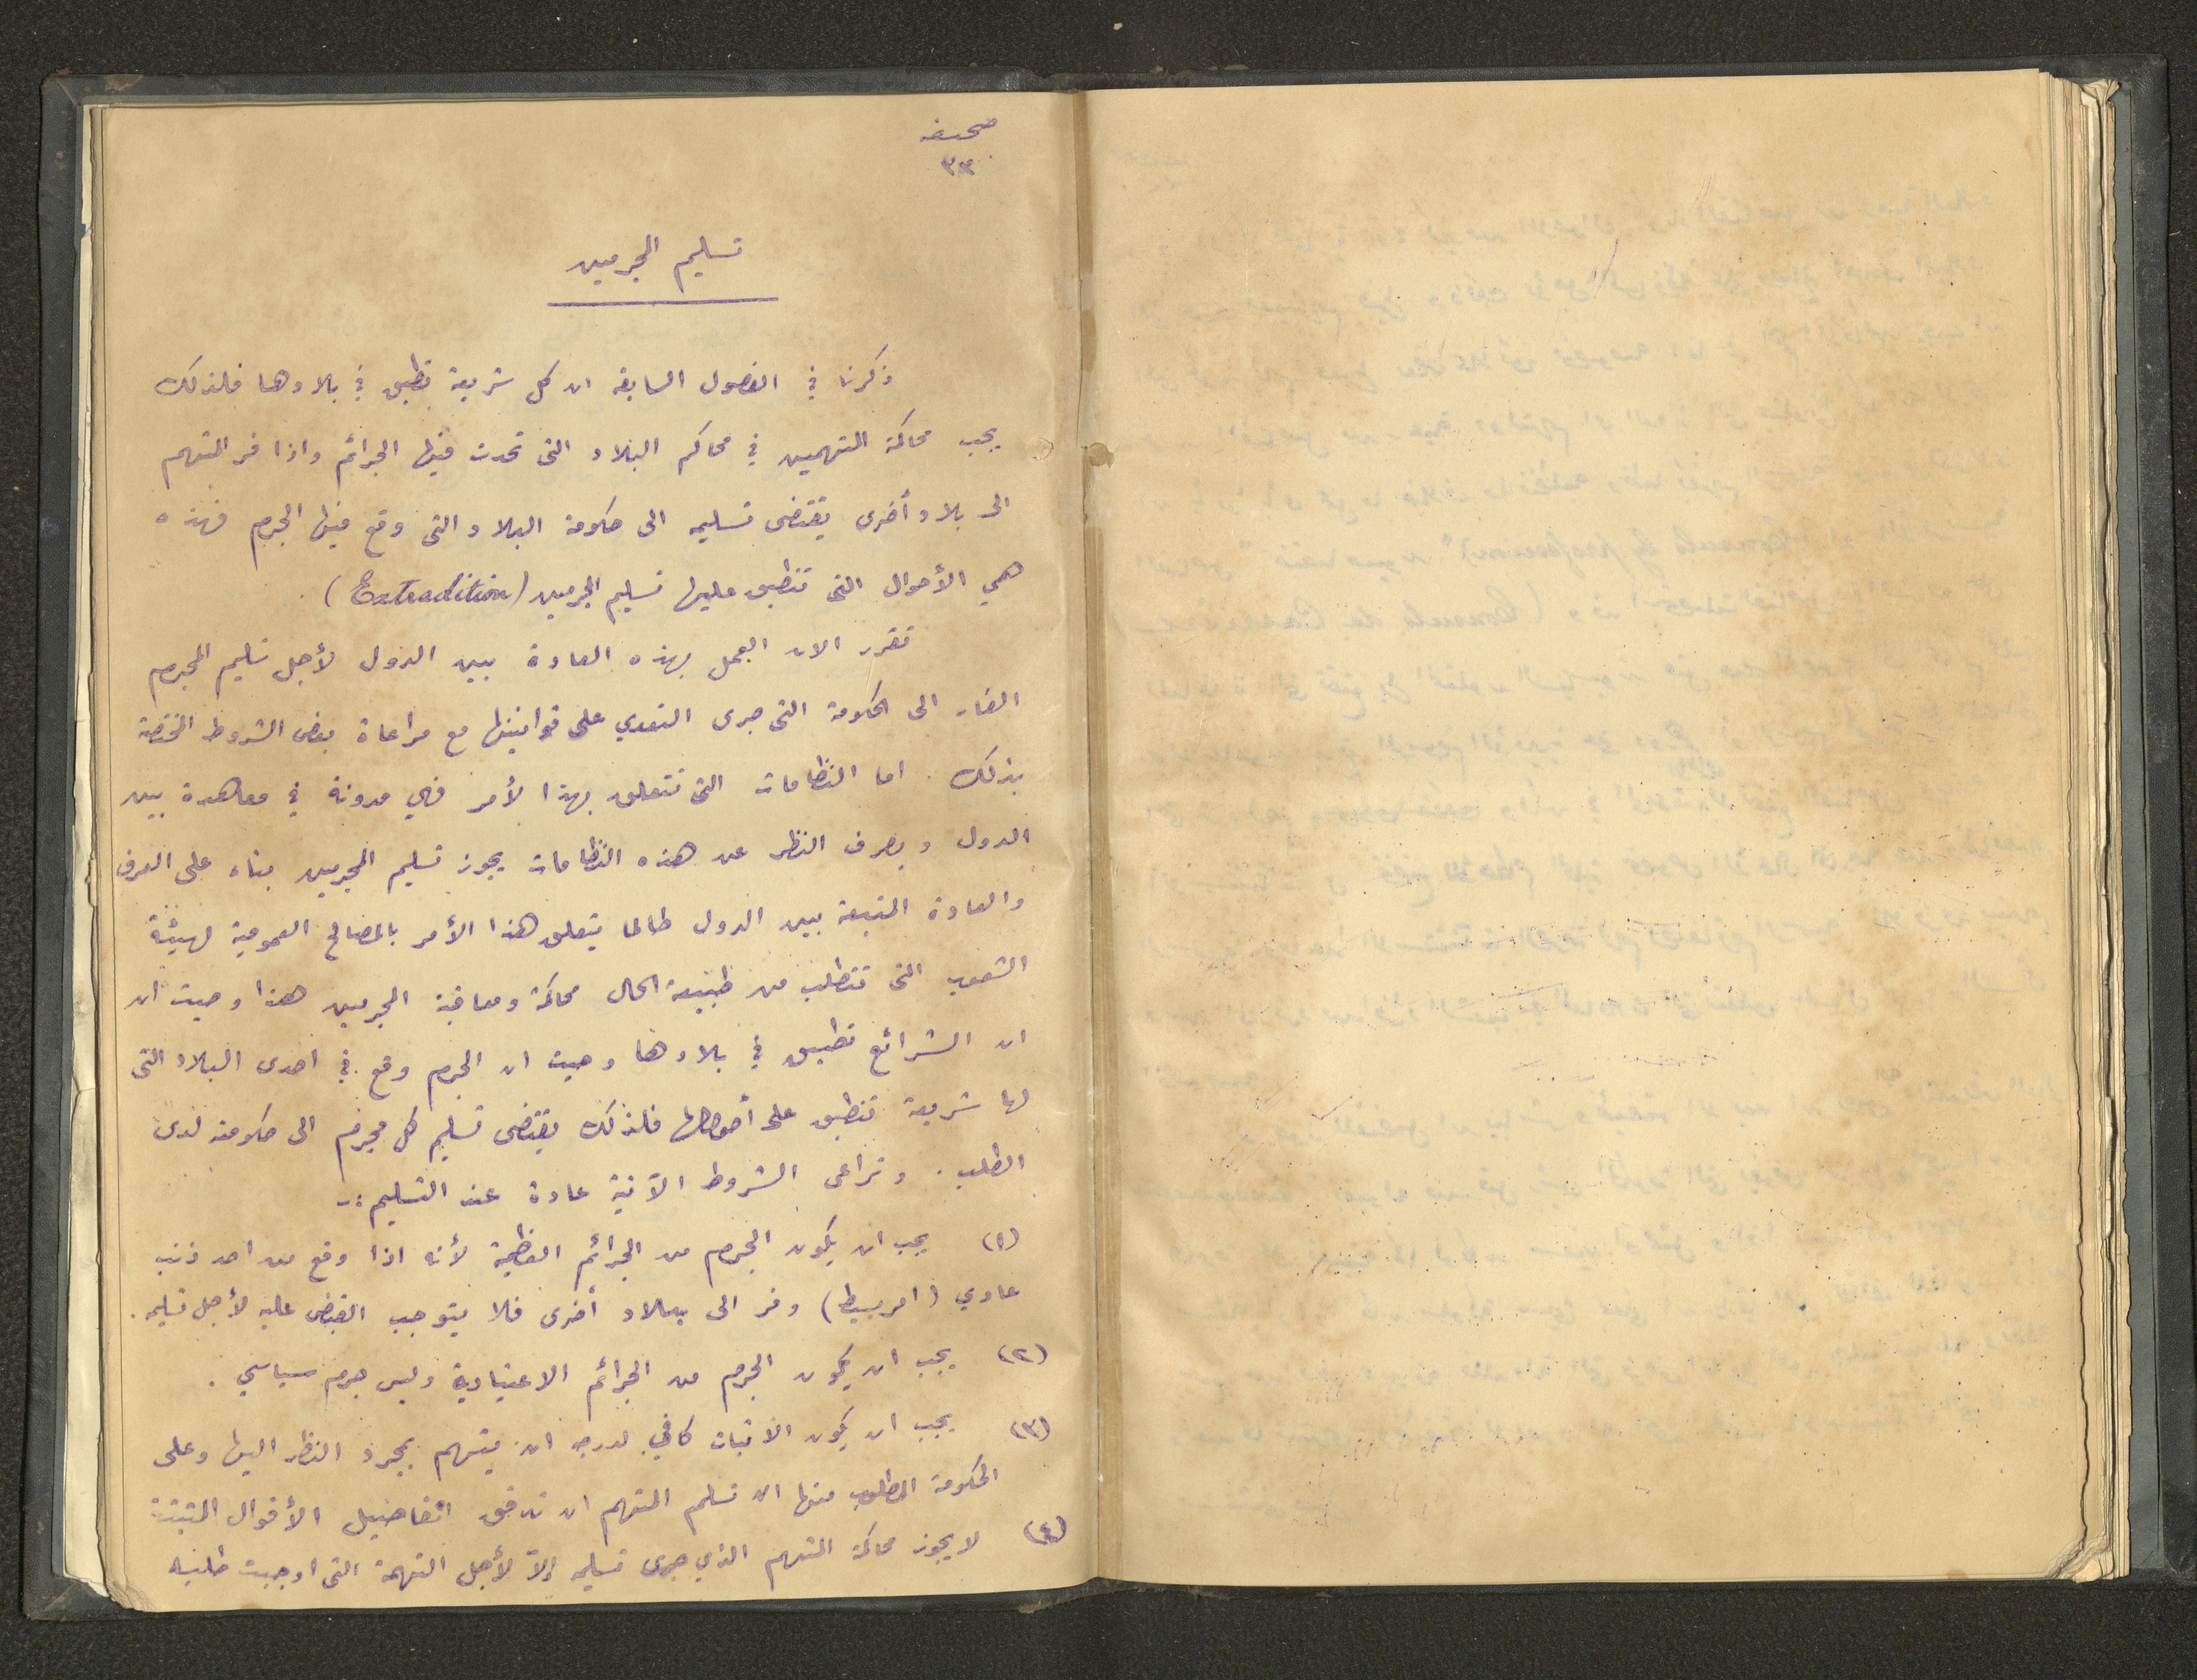 صحيفه
٣٣
تسليم المجرمين
ذكرنا في الفصول السابقة ان كل شريعة تطبق في بلادها فلذلك
يجب محاكمة المتهمين في محاكم البلاد التى تحدث فيها الجرائم واذا فر المتهم
الى بلاد أخرى يقتضى تسليمه الى حكومة البلاد التى وقع فيها الجرم فهذه
هي الأحوال التى تنطبق عليها تسليم المجرمين (Extradition).
تقرر الان العمل بهذه العادة بين الدول لأجل تسليم المجرم
الفار الى الحكومة التى جرى التعدي على قوانينها مع مراعاة بعض الشروط المختصة
بذلك . اما النظامات التى تتعلق بهذا لأمر فهي مدونة في معاهدة بين
الدول وبصرف النظر عن هذه النظامات يجوز تسليم المجرمين بناء على العرف
والعادة المتبعة بين الدول طالما يتعلق هذا الأمر بالمصالح العمومية لهيئة
الشعوب التى تتطلب من طبيعة الحال محاكمة ومعاقبة المجرمين هذا وحيث ان
ان الشرائع تطبق في بلادها وحيث ان الجرم وقع في احدى البلاد التى
لها شريعة تنطبق على أصولها فلذلك يقتضى تسليم كل مجرم الى حكومته لدى
الطلب . وتراعى الشروط الآتية عادة عند التسليم :-
(١) يجب ان يكون الجرم من الجرائم العظيمة لأنه اذا وقع من احد ذنب
عادي (امر بسيط) وفر الى بلاد أخرى فلا يتوجب القبض عليه لأجل تسليمه .
(٢) يجب ان يكون الجرم من الجرائم الاعتيادية وليس جرم سياسي .
(٣) يجب ان يكون الاثبات كافي لدرجه ان يتهم بمجرد النظر اليها وعلى
الحكومة المطلوب منها ان تسلم المتهم ان تدقق تفاصيل الأقوال المثبتة
(٤) لا يجوز محاكمة المتهم الذي جرى تسليمه إلاّ لأجل التهمة التى اوجبت طلبه